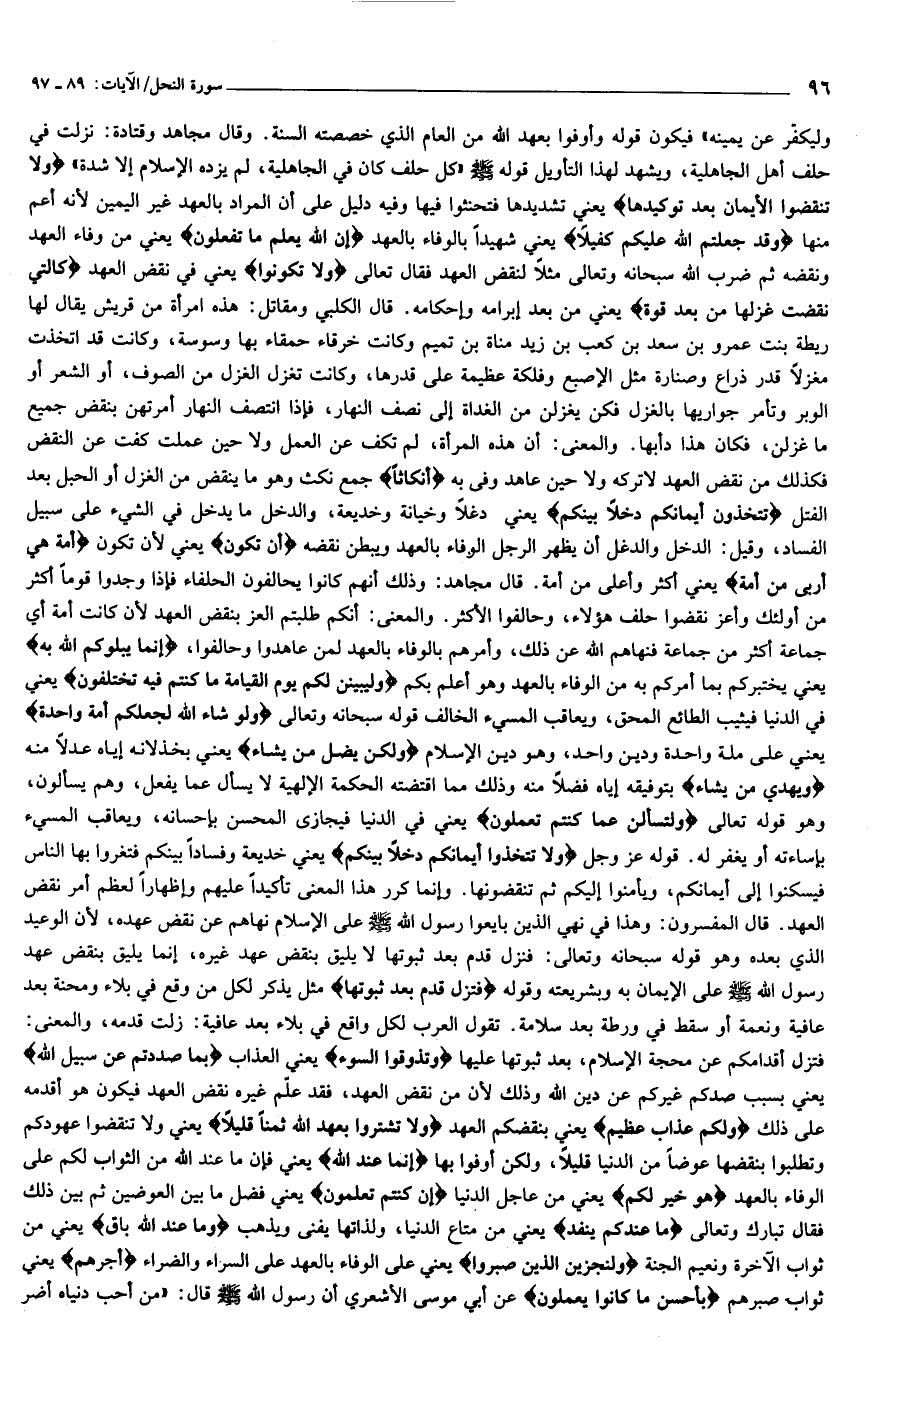 ٩٦ سورة النحل/ الآيات: ٨٩ ـ ٩٧
وليكفّر عن يمينه» فيكون قوله وأوفوا بعهد الله من العام الذي خصصته السنة. وقال مجاهد وقتادة: نزلت في
حلف أهل الجاهلية، ويشهد لهذا التأويل قوله ﷺ «كل حلف كان في الجاهلية، لم يزده الإسلام إلا شدة» ﴿ولا
تنقضوا الأيمان بعد توكيدها﴾ يعني تشديدها فتحنثوا فيها وفيه دليل على أن المراد بالعهد غير اليمين لأنه أعم
منها ﴿وقد جعلتم الله عليكم كفيلاً﴾ يعني شهيداً بالوفاء بالعهد ﴿إن الله يعلم ما تفعلون﴾ يعني من وفاء العهد
ونقضه ثم ضرب الله سبحانه وتعالى مثلاً لنقض العهد فقال تعالى ﴿ولا تكونوا﴾ يعني في نقض العهد ﴿كالتي
نقضت غزلها من بعد قوة﴾ يعني من بعد إبرامه وإحكامه. قال الكلبي ومقاتل: هذه امرأة من قريش يقال لها
ريطة بنت عمرو بن سعد بن كعب بن زيد مناة بن تميم وكانت خرقاء حمقاء بها وسوسة، وكانت قد اتخذت
مغزلاً قدر ذراع وصنارة مثل الإصبع وفلكة عظيمة على قدرها، وكانت تغزل الغزل من الصوف، أو الشعر أو
الوبر وتأمر جواريها بالغزل فكن يغزلن من الغداة إلى نصف النهار، فإذا انتصف النهار أمرتهن بنقض جميع
ما غزلن، فكان هذا دأبها. والمعنى: أن هذه المرأة، لم تكف عن العمل ولا حين عملت كفت عن النقض
فكذلك من نقض العهد لاتركه ولا حين عاهد وفى به ﴿أنكاثاً﴾ جمع نكث وهو ما ينقض من الغزل أو الحبل بعد
الفتل ﴿تتخذون أيمانكم دخلاً بينكم﴾ يعني دغلاً وخيانة وخديعة، والدخل ما يدخل في الشيء على سبيل
الفساد، وقيل: الدخل والدغل أن يظهر الرجل الوفاء بالعهد ويبطن نقضه ﴿أن تكون﴾ يعني لأن تكون ﴿أمة هي
أربى من أمة﴾ يعني أكثر وأعلى من أمة. قال مجاهد: وذلك أنهم كانوا يحالفون الحلفاء فإذا وجدوا قوماً أكثر
من أولئك وأعز نقضوا حلف هؤلاء، وحالفوا الأكثر. والمعنى: أنكم طلبتم العز بنقض العهد لأن كانت أمة أي
جماعة أكثر من جماعة فنهاهم الله عن ذلك، وأمرهم بالوفاء بالعهد لمن عاهدوا وحالفوا، ﴿إنما يبلوكم الله به﴾
يعني يختبركم بما أمركم به من الوفاء بالعهد وهو أعلم بكم ﴿وليبينن لكم يوم القيامة ما كنتم فيه تختلفون﴾ يعني
في الدنيا فيثيب الطائع المحق، ويعاقب المسيء الخالف قوله سبحانه وتعالى ﴿ولو شاء الله لجعلكم أمة واحدة﴾
يعني على ملة واحدة ودين واحد، وهو دين الإسلام ﴿ولكن يضل من يشاء﴾ يعني بخذلانه إياه عدلاً منه
﴿ويهدي من يشاء﴾ بتوفيقه إياه فضلاً منه وذلك مما اقتضته الحكمة الإلهية لا يسأل عما يفعل، وهم يسألون،
وهو قوله تعالى ﴿ولتسألن عما كنتم تعملون﴾ يعني في الدنيا فيجازى المحسن بإحسانه، ويعاقب المسيء
بإساءته أو يغفر له. قوله عز وجل ﴿ولا تتخذوا أيمانكم دخلاً بينكم﴾ يعني خديعة وفساداً بينكم فتغروا بها الناس
فيسكنوا إلى أيمانكم، ويأمنوا إليكم ثم تنقضونها. وإنما كرر هذا المعنى تأكيداً عليهم وإظهاراً لعظم أمر نقض
العهد. قال المفسرون: وهذا في نهي الذين بايعوا رسول الله ﷺ على الإسلام نهاهم عن نقض عهده، لأن الوعيد
الذي بعده وهو قوله سبحانه وتعالى: فنزل قدم بعد ثبوتها لا يليق بنقض عهد غيره، إنما يليق بنقض عهد
رسول الله ﷺ على الإيمان به وبشريعته وقوله ﴿فتزل قدم بعد ثبوتها﴾ مثل يذكر لكل من وقع في بلاء ومحنة بعد
عافية ونعمة أو سقط في ورطة بعد سلامة. تقول العرب لكل واقع في بلاء بعد عافية: زلت قدمه، والمعنى:
فتزل أقدامكم عن محجة الإسلام، بعد ثبوتها عليها ﴿وتذوقوا السوء﴾ يعني العذاب ﴿بما صددتم عن سبيل الله﴾
يعني بسبب صدكم غيركم عن دين الله وذلك لأن من نقض العهد، فقد علّم غيره نقض العهد فيكون هو أقدمه
على ذلك ﴿ولكم عذاب عظيم﴾ يعني بنقضكم العهد ﴿ولا تشتروا بعهد الله ثمناً قليلاً﴾ يعني ولا تنقضوا عهودكم
وتطلبوا بنقضها عوضاً من الدنيا قليلاً، ولكن أوفوا بها ﴿إنما عند الله﴾ يعني فإن ما عند الله من الثواب لكم على
الوفاء بالعهد ﴿هو خير لكم﴾ يعني من عاجل الدنيا ﴿إن كنتم تعلمون﴾ يعني فضل ما بين العوضين ثم بين ذلك
فقال تبارك وتعالى ﴿ما عندكم ينفد﴾ يعني من متاع الدنيا، ولذاتها يفنى ويذهب ﴿وما عند الله باق﴾ يعني من
ثواب الآخرة ونعيم الجنة ﴿ولنجزين الذين صبروا﴾ يعني على الوفاء بالعهد على السراء والضراء ﴿أجرهم﴾ يعني
ثواب صبرهم ﴿بأحسن ما كانوا يعملون﴾ عن أبي موسى الأشعري أن رسول الله ﷺ قال: «من أحب دنياه أضر